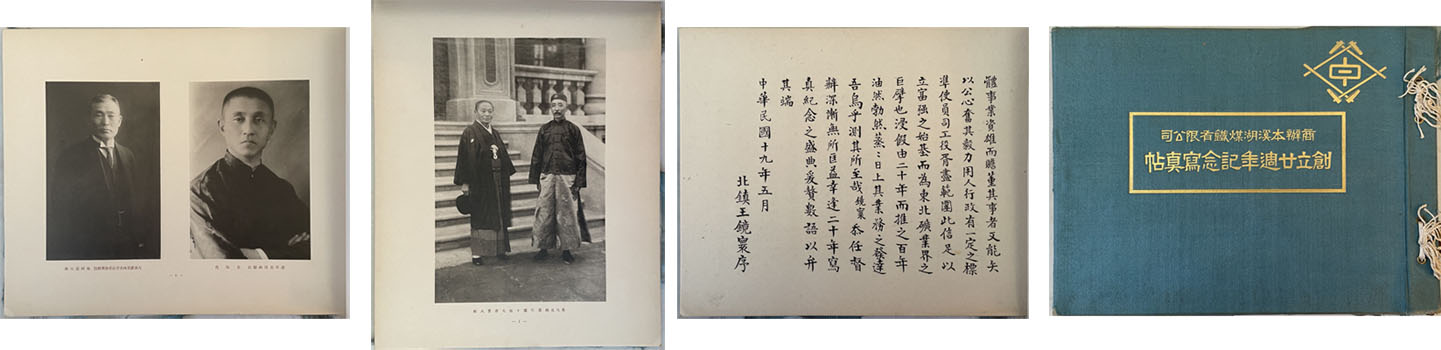 體事業資雄而贍董其事者又能矢
以公心奮其毅力用人行政有一定之標
準使員司工役胥盡範圍此信足以
立富強之始基而為東北礦業界之
巨擘也浸假由二十年而推之百年
油然勃然蒸〻日上其業務之發達
吾烏乎測其所至哉鏡寰忝任督
辦深漸無所匡益幸逢二十年寫
真紀念之盛典爰贅數語以弁
其端
中華民國十九年五月
北鎮王鏡寰序
商辦本溪湖煤鐵有限公司
創立廿週年記念寫真帖